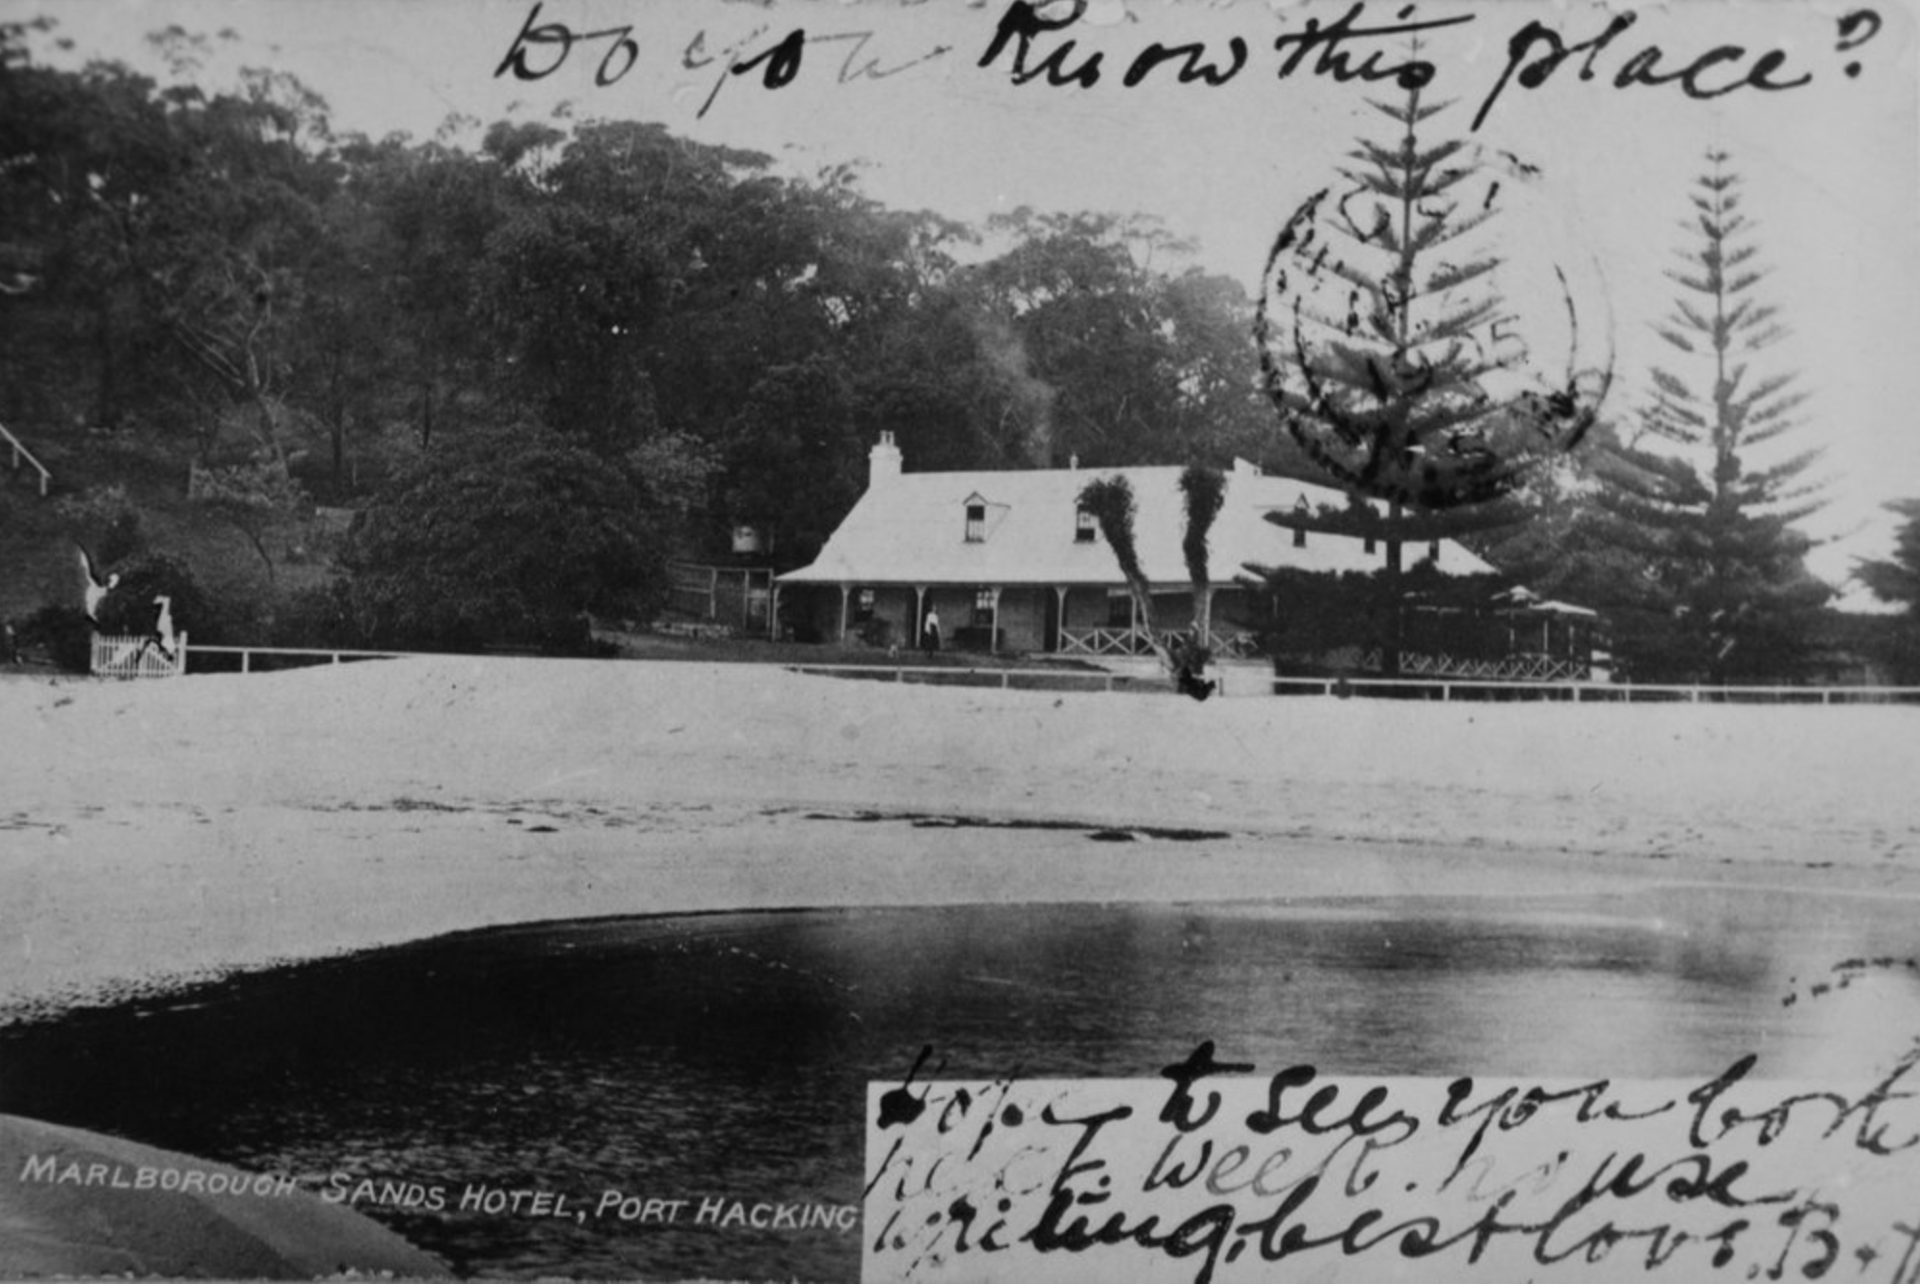 Do you Know this place?
1905
N.S.W
Hope to see you both
next week. house
writing, best love. B.
MARLBOROUGH SANDS HOTEL, PORT HACKING